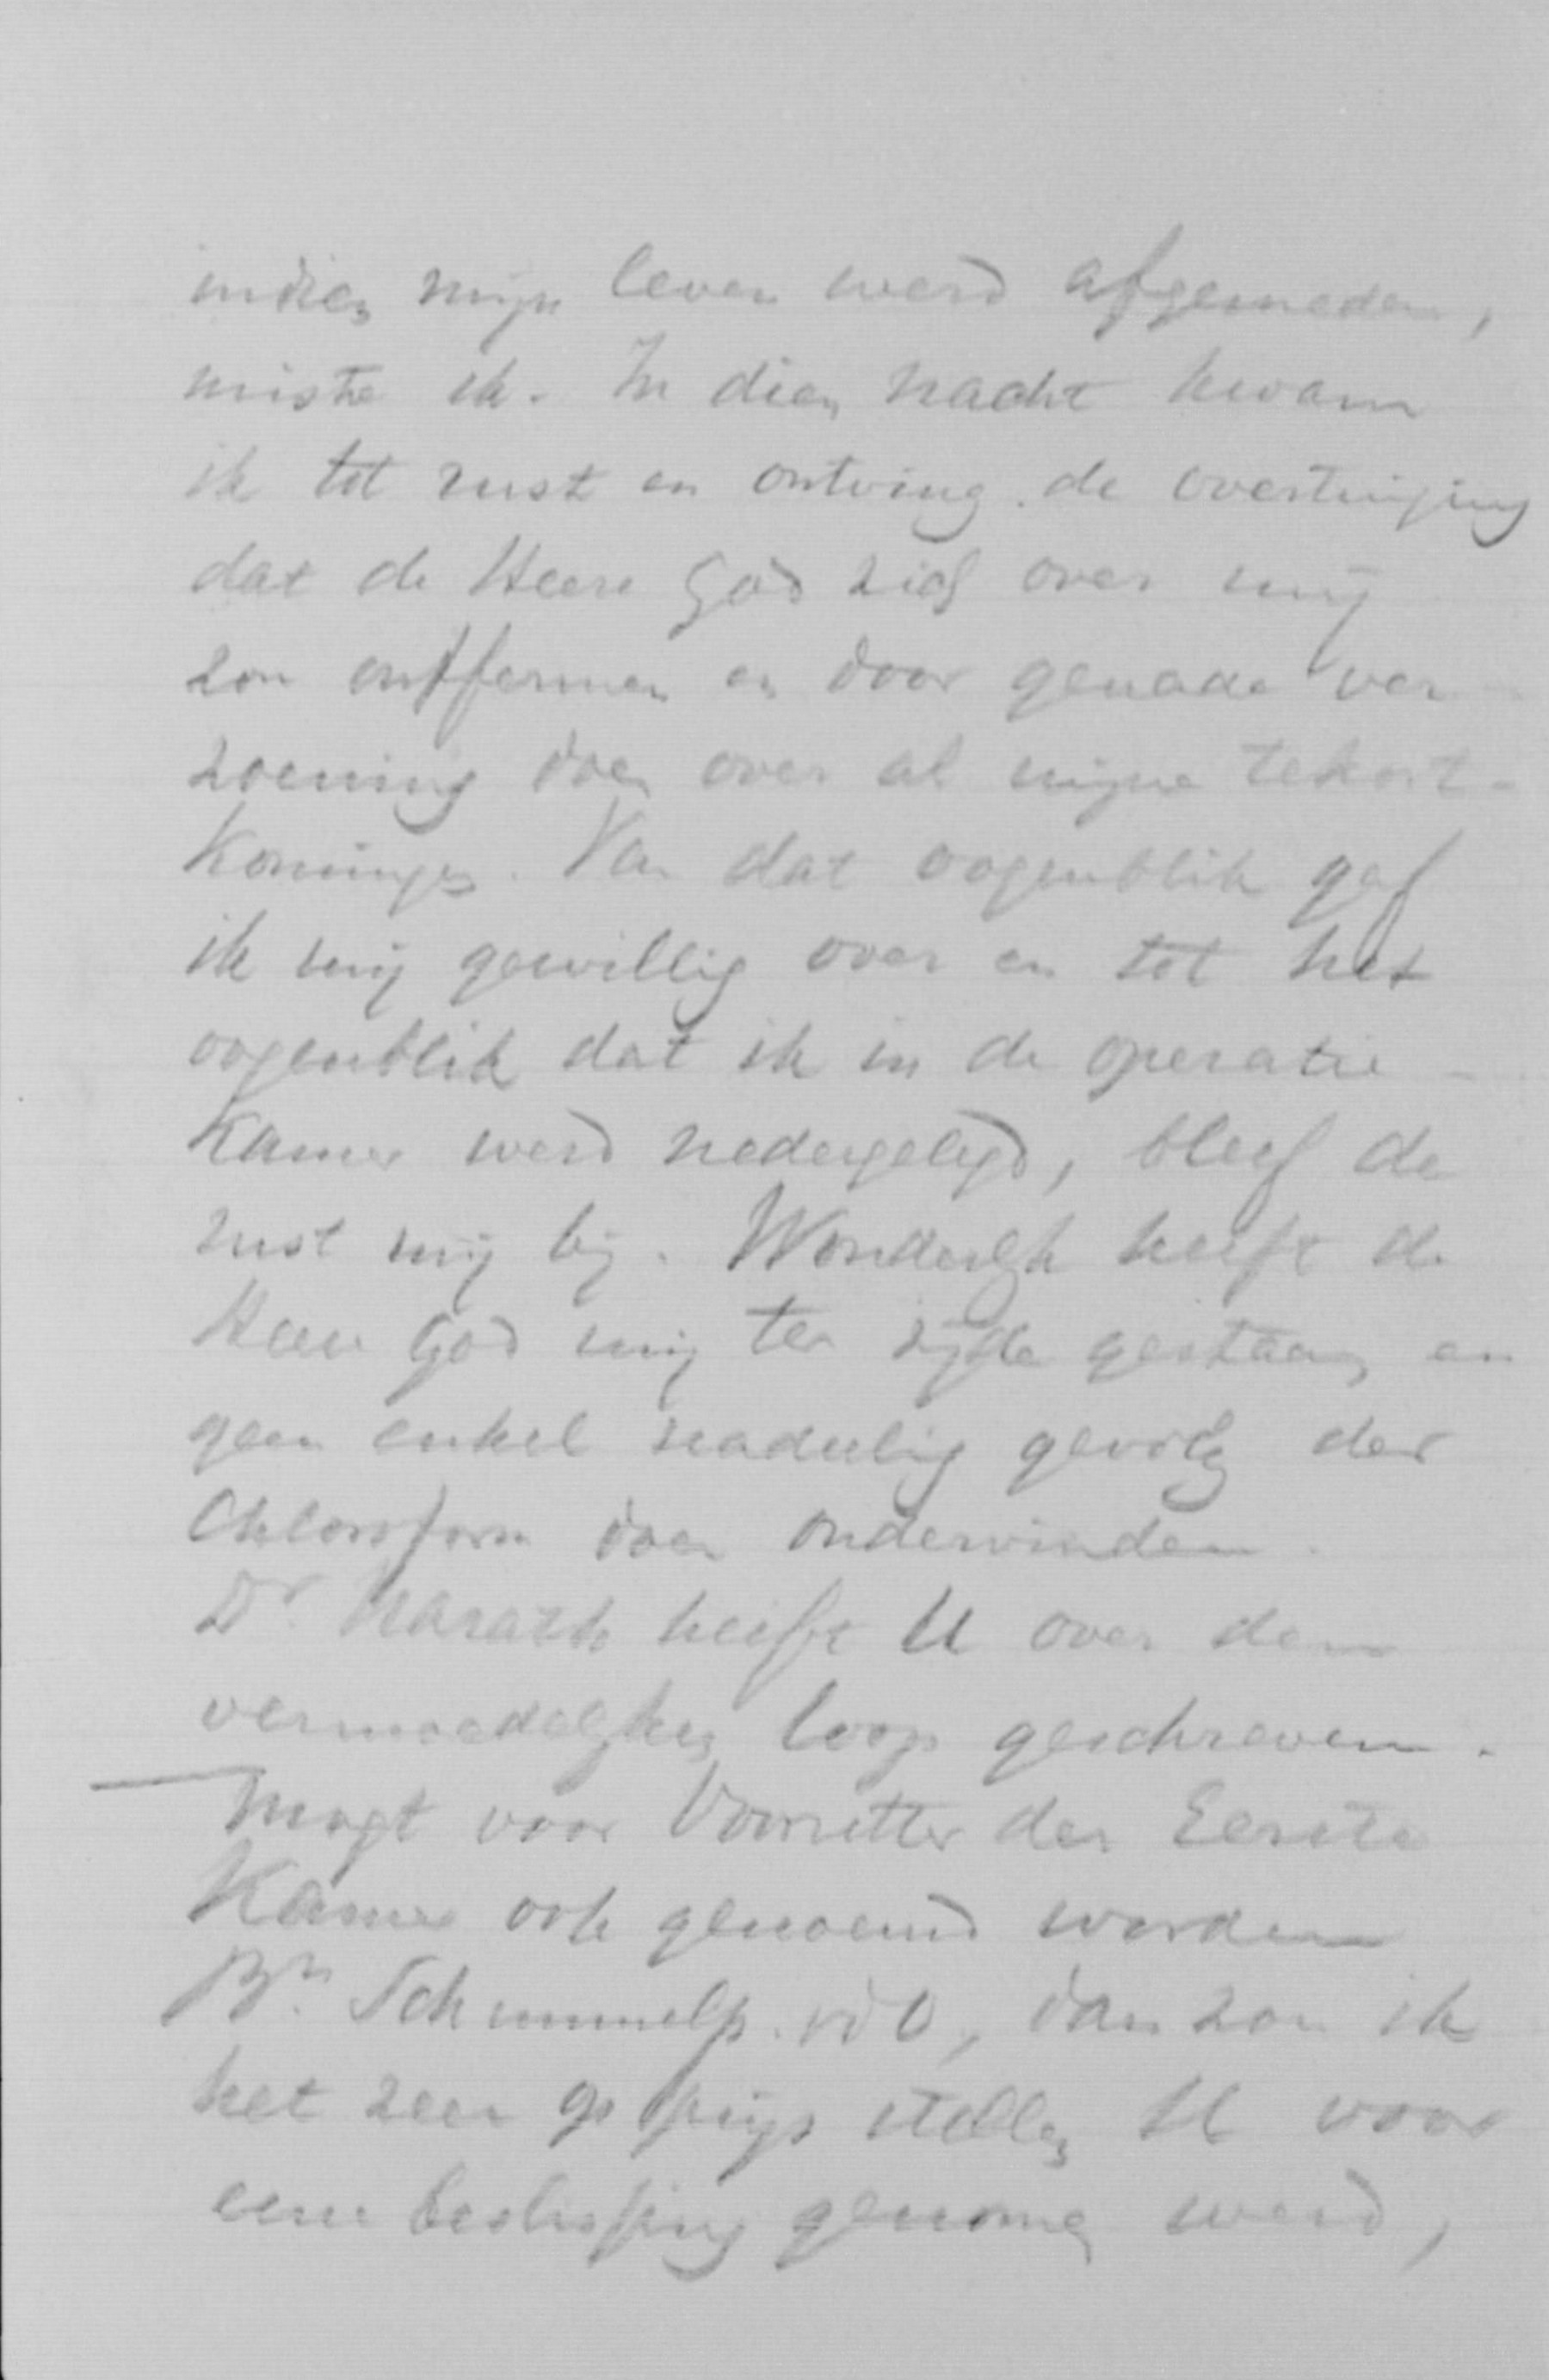 indien mijn leven werd afgesneden,
miste ik. In dien nacht kwam
ik tot rust en ontving de overtuiging
dat de Heere God zich over mij
zou ontfermen en door genade ver
zoening doen over al mijne tekort-
komingen. Van dat oogenblik gaf
ik mij gewillig over en tot het
oogenblik dat ik in de operatie -
kamer werd nedergelegd, bleef de
rust mij bij. Wonderlijk heeft de
Heere God mij ter zijde gestaan en
geen enkel nadeelig gevolg der
Chloroform doen ondervinden.
Dr. Narath heeft U over den
vermoedelijken loop geschreven.
Mogt voor Voorzitter der Eerste
Kamer ook genoemd worden
Bn. Schimmelp. vd O, dan zou ik
het zeer op prijs stellen U voor
eene beslissing genomen werd,